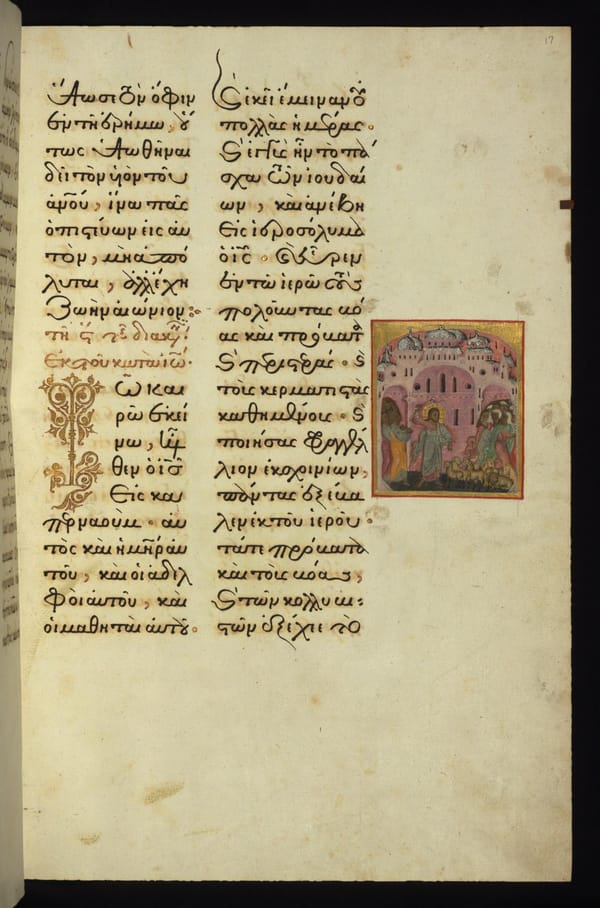 17
ὕψωσε τὸν ὄφιν
ἐν τῆ ἐρήμω, οὕ
τως ὑψωθῆναι
δεῖ τὸν υἱὸν τοῦ
ἀνου, ἵνα πᾶς
ὁ πιστεύων εἰς αὐ
τὸν, μὴ ἀπό
ληται, ἀλλ' ἔχη
ζωὴν αἰώνιον:
τῆ ϛ τῆς διακιν
Ἐκ τοῦ κατὰ ἰω.
Τῶ και
ρῶ ἐκεί
νω, ἦλ
θεν ὁ ις
Εἰς κα
περναούμ. αὐ
τὸς καὶ ἡ μηρ αὐ
τοῦ, καὶ οἱ ἀδελ
φοὶ αὐτοῦ, καὶ
οἱ μαθηταὶ αὐτοῦ.
ϗ ἐκεῖ ἔμειναν οὐ
πολλὰς ἡμέρας.
ϗ ἐγγὺς ἦν τὸ πά
σχα τῶν ἰουδαί
ων, καὶ ἀνέβη
Εἰς ἱεροσόλυμα
ὁ ις. ϗ εὗρεν
ἐν τῶ ἱερῶ τοὺς
πωλοῦντας βό
ας καὶ πρόβατα
ϗ περιστερὰς. ϗ
τοὺς κερματιστὰς
καθημένους. ϗ
ποιήσας φραγγέλ
λιον ἐκ σχοινίων,
πάντας ἐξέβα
λεν ἐκ τοῦ ἱεροῦ.
τά τε πρόβατα
καὶ τοὺς βόας,
ϗ τῶν κολλυβι
στῶν ἐξέχεε τὸ